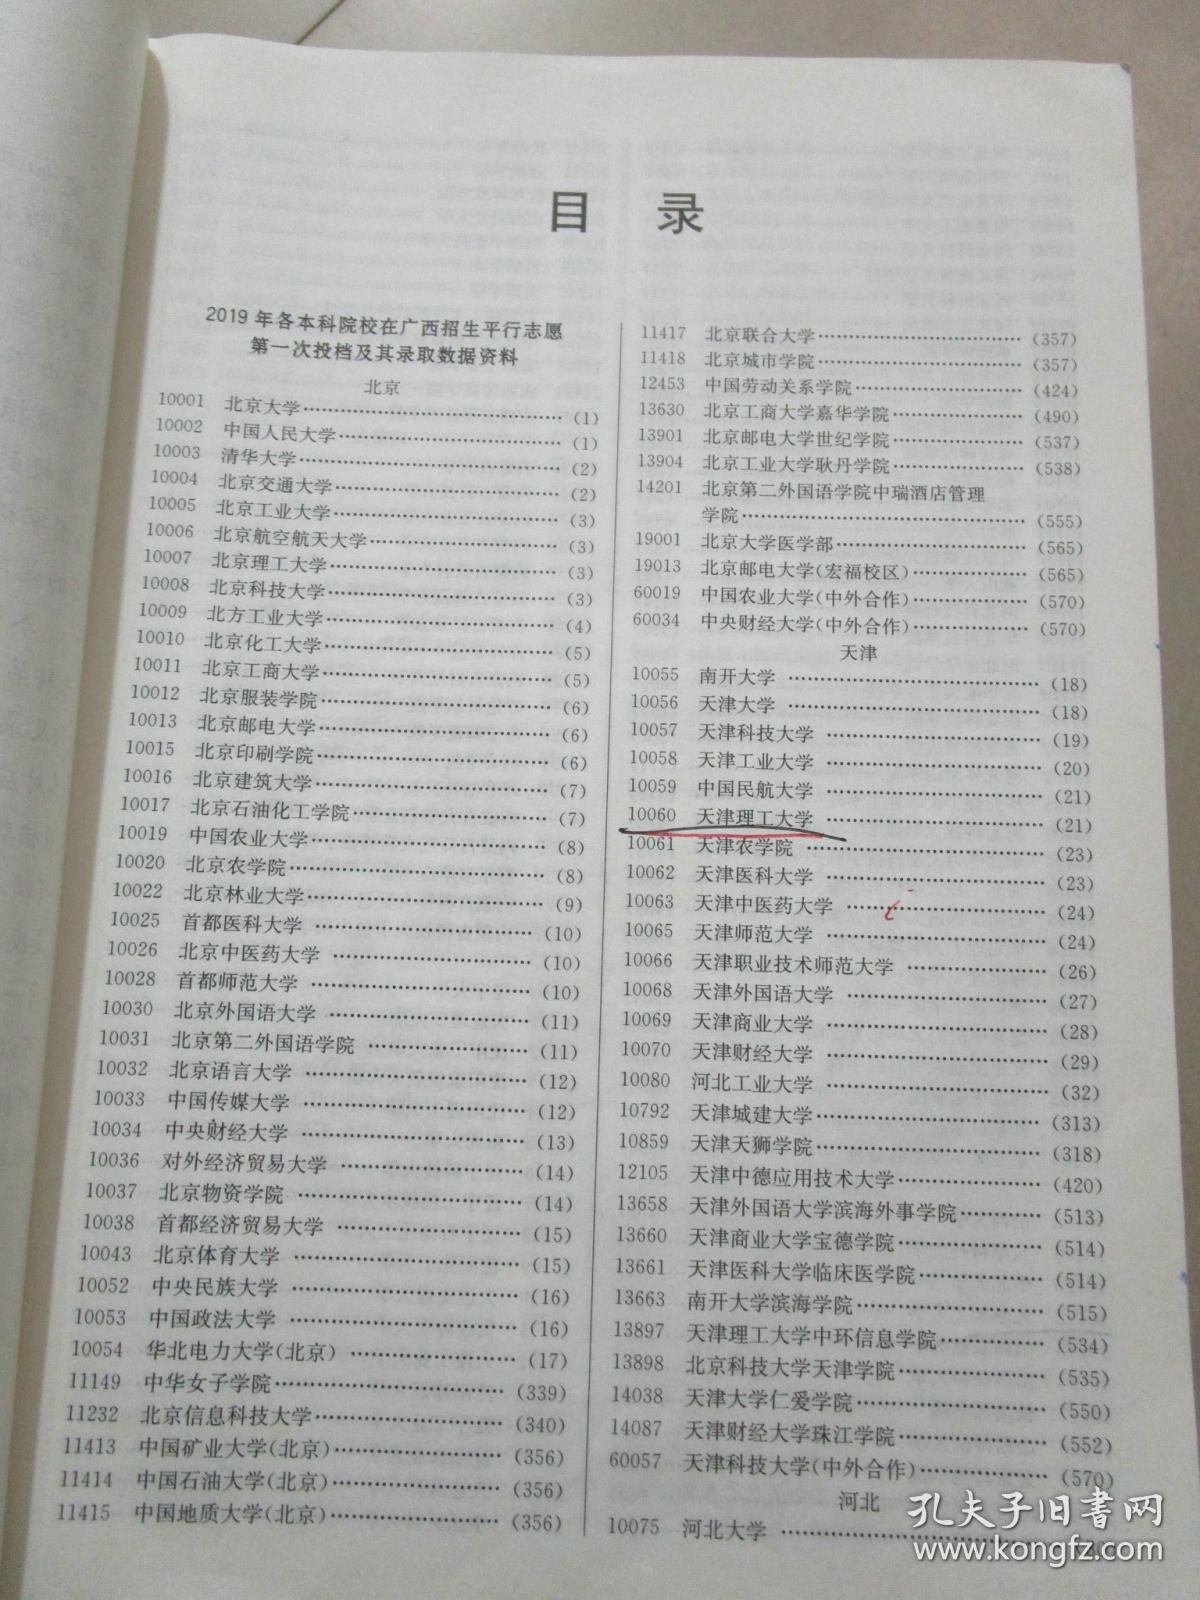 目 录
2019年各本科院校在广西招生平行志愿
第一次投档及其录取数据资料
北京
10001 北京大学……………………(1)
10002 中国人民大学……………………(1)
10003 清华大学……………………(2)
10004 北京交通大学……………………(2)
10005 北京工业大学……………………(3)
10006 北京航空航天大学……………………(3)
10007 北京理工大学……………………(3)
10008 北京科技大学……………………(3)
10009 北方工业大学……………………(4)
10010 北京化工大学……………………(5)
10011 北京工商大学……………………(5)
10012 北京服装学院……………………(6)
10013 北京邮电大学……………………(6)
10015 北京印刷学院……………………(6)
10016 北京建筑大学……………………(7)
10017 北京石油化工学院……………………(7)
10019 中国农业大学……………………(8)
10020 北京农学院……………………(8)
10022 北京林业大学……………………(9)
10025 首都医科大学……………………(10)
10026 北京中医药大学……………………(10)
10028 首都师范大学……………………(10)
10030 北京外国语大学……………………(11)
10031 北京第二外国语学院……………………(11)
10032 北京语言大学……………………(12)
10033 中国传媒大学……………………(12)
10034 中央财经大学……………………(13)
10036 对外经济贸易大学……………………(14)
10037 北京物资学院……………………(14)
10038 首都经济贸易大学……………………(15)
10043 北京体育大学……………………(15)
10052 中央民族大学……………………(16)
10053 中国政法大学……………………(16)
10054 华北电力大学(北京)……………………(17)
11149 中华女子学院……………………(339)
11232 北京信息科技大学……………………(340)
11413 中国矿业大学(北京)……………………(356)
11414 中国石油大学(北京)……………………(356)
11415 中国地质大学(北京)……………………(356)
11417 北京联合大学……………………(357)
11418 北京城市学院……………………(357)
12453 中国劳动关系学院……………………(424)
13630 北京工商大学嘉华学院……………………(490)
13901 北京邮电大学世纪学院……………………(537)
13904 北京工业大学耿丹学院……………………(538)
14201 北京第二外国语学院中瑞酒店管理
学院……………………(555)
19001 北京大学医学部……………………(565)
19013 北京邮电大学(宏福校区)……………………(565)
60019 中国农业大学(中外合作)……………………(570)
60034 中央财经大学(中外合作)……………………(570)
天津
10055 南开大学……………………(18)
10056 天津大学……………………(18)
10057 天津科技大学……………………(19)
10058 天津工业大学……………………(20)
10059 中国民航大学……………………(21)
10060 天津理工大学……………………(21)
10061 天津农学院……………………(23)
10062 天津医科大学……………………(23)
10063 天津中医药大学……………………(24)
10065 天津师范大学……………………(24)
10066 天津职业技术师范大学……………………(26)
10068 天津外国语大学……………………(27)
10069 天津商业大学……………………(28)
10070 天津财经大学……………………(29)
10080 河北工业大学……………………(32)
10792 天津城建大学……………………(313)
10859 天津天狮学院……………………(318)
12105 天津中德应用技术大学……………………(420)
13658 天津外国语大学滨海外事学院……………………(513)
13660 天津商业大学宝德学院……………………(514)
13661 天津医科大学临床医学院……………………(514)
13663 南开大学滨海学院……………………(515)
13897 天津理工大学中环信息学院……………………(534)
13898 北京科技大学天津学院……………………(535)
14038 天津大学仁爱学院……………………(550)
14087 天津财经大学珠江学院……………………(552)
60057 天津科技大学(中外合作)……………………(570)
河北
10075 河北大学……………………
孔夫子旧书网
www.kongfz.com